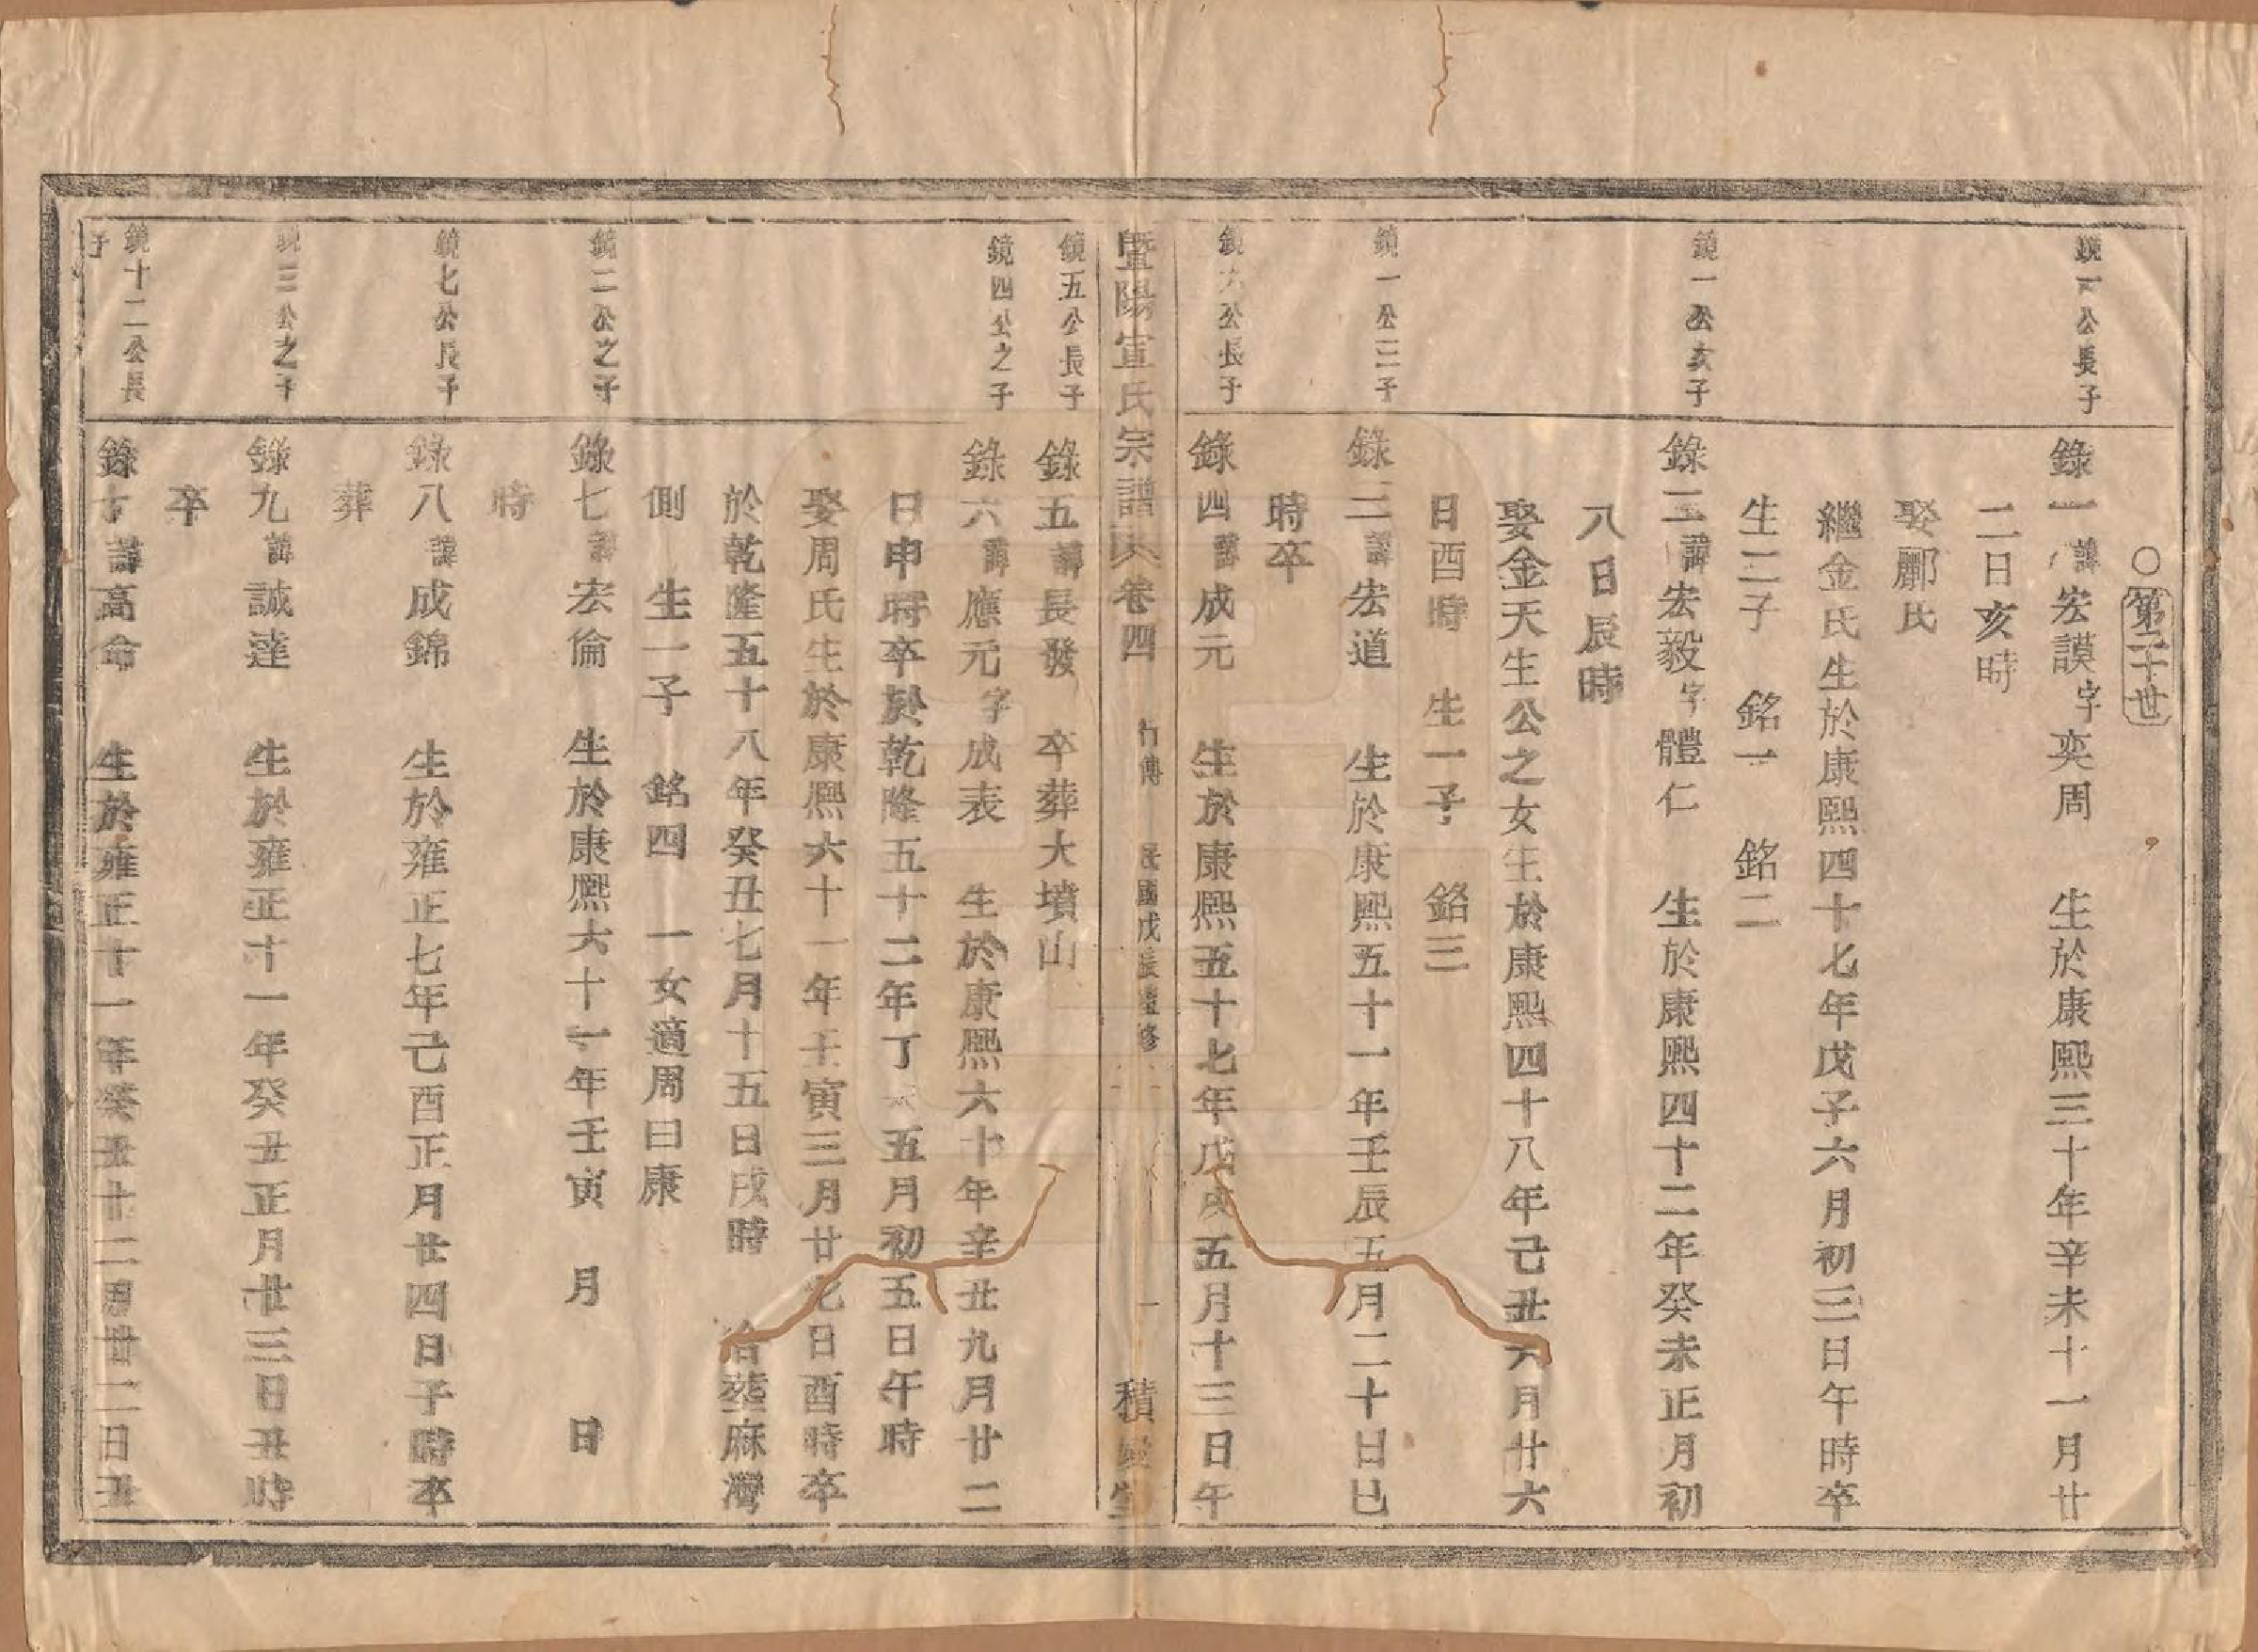 ○第二十世
鏡一公長子
錄一諱宏謨字奕周 生於康熙三十年辛未十一月廿
二日亥時
娶酈氏
繼金氏生於康熙四十七年戊子六月初三日午時卒
生二子 銘一 銘二
鏡一公次子
錄二諱宏毅字體仁 生於康熙四十二年癸未正月初
八日辰時
娶金天生公之女生於康熙四十八年己丑六月廿六
日酉時 生一子 銘三
鏡一公三子
錄三諱宏道 生於康熙五十一年壬辰五月二十日巳
時卒
鏡六公長子
錄四諱成元 生於康熙五十七年戊戌五月十三日午
暨陽宣氏宗譜 卷四 行傳 民國戊辰重修 一 積慶堂
鏡五公長子
錄五諱長發 卒葬大墳山
鏡四公之子
錄六諱應元字成表 生於康熙六十年辛丑九月廿二
日申時卒於乾隆五十二年丁 五月初五日午時
娶周氏生於康熙六十一年壬寅三月廿七日酉時卒
於乾隆五十八年癸丑七月十五日戌時 合塟麻灣
側 生一子 銘四 一女適周曰康
鏡二公之子
錄七諱宏倫 生於康熙六十一年壬寅 月 日
時
鏡七公長子
錄八諱成錦 生於雍正七年己酉正月廿四日子時卒
葬
鏡三公之子
錄九諱誠達 生於雍正十一年癸丑正月廿三日丑時
卒
鏡十二公長子
錄十諱高命 生於雍正十一年癸丑十二月廿二日丑